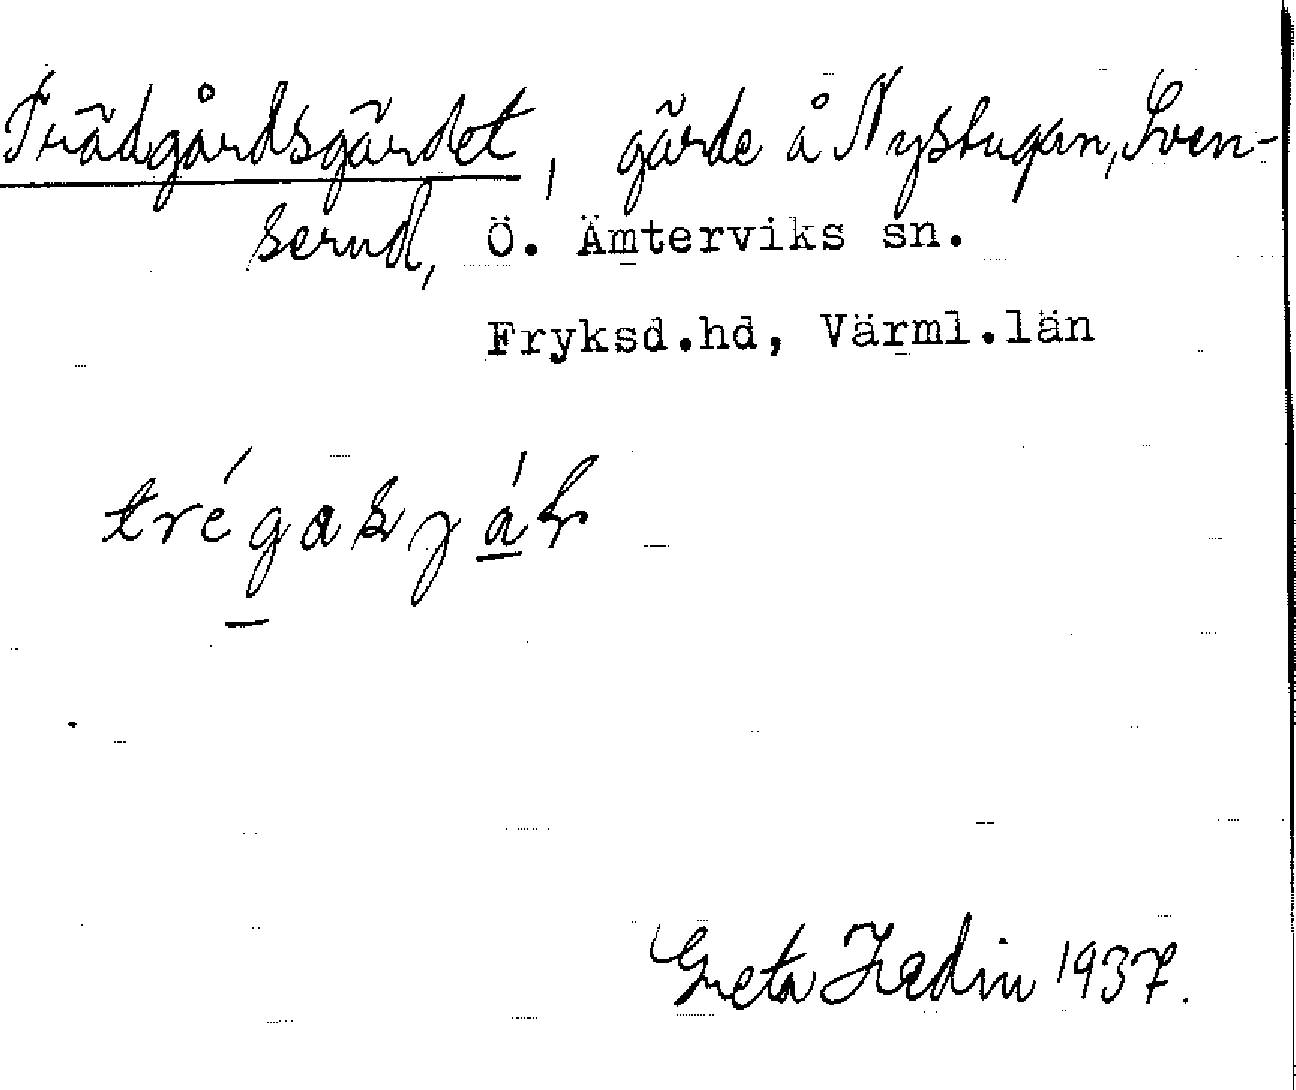 Trädgårdsgärdet, gärde å Nystugan, Sven-
serud, Ö. Ämterviks sn.
Fryksd.hd, Värml.län
Greta Hedin 1937.